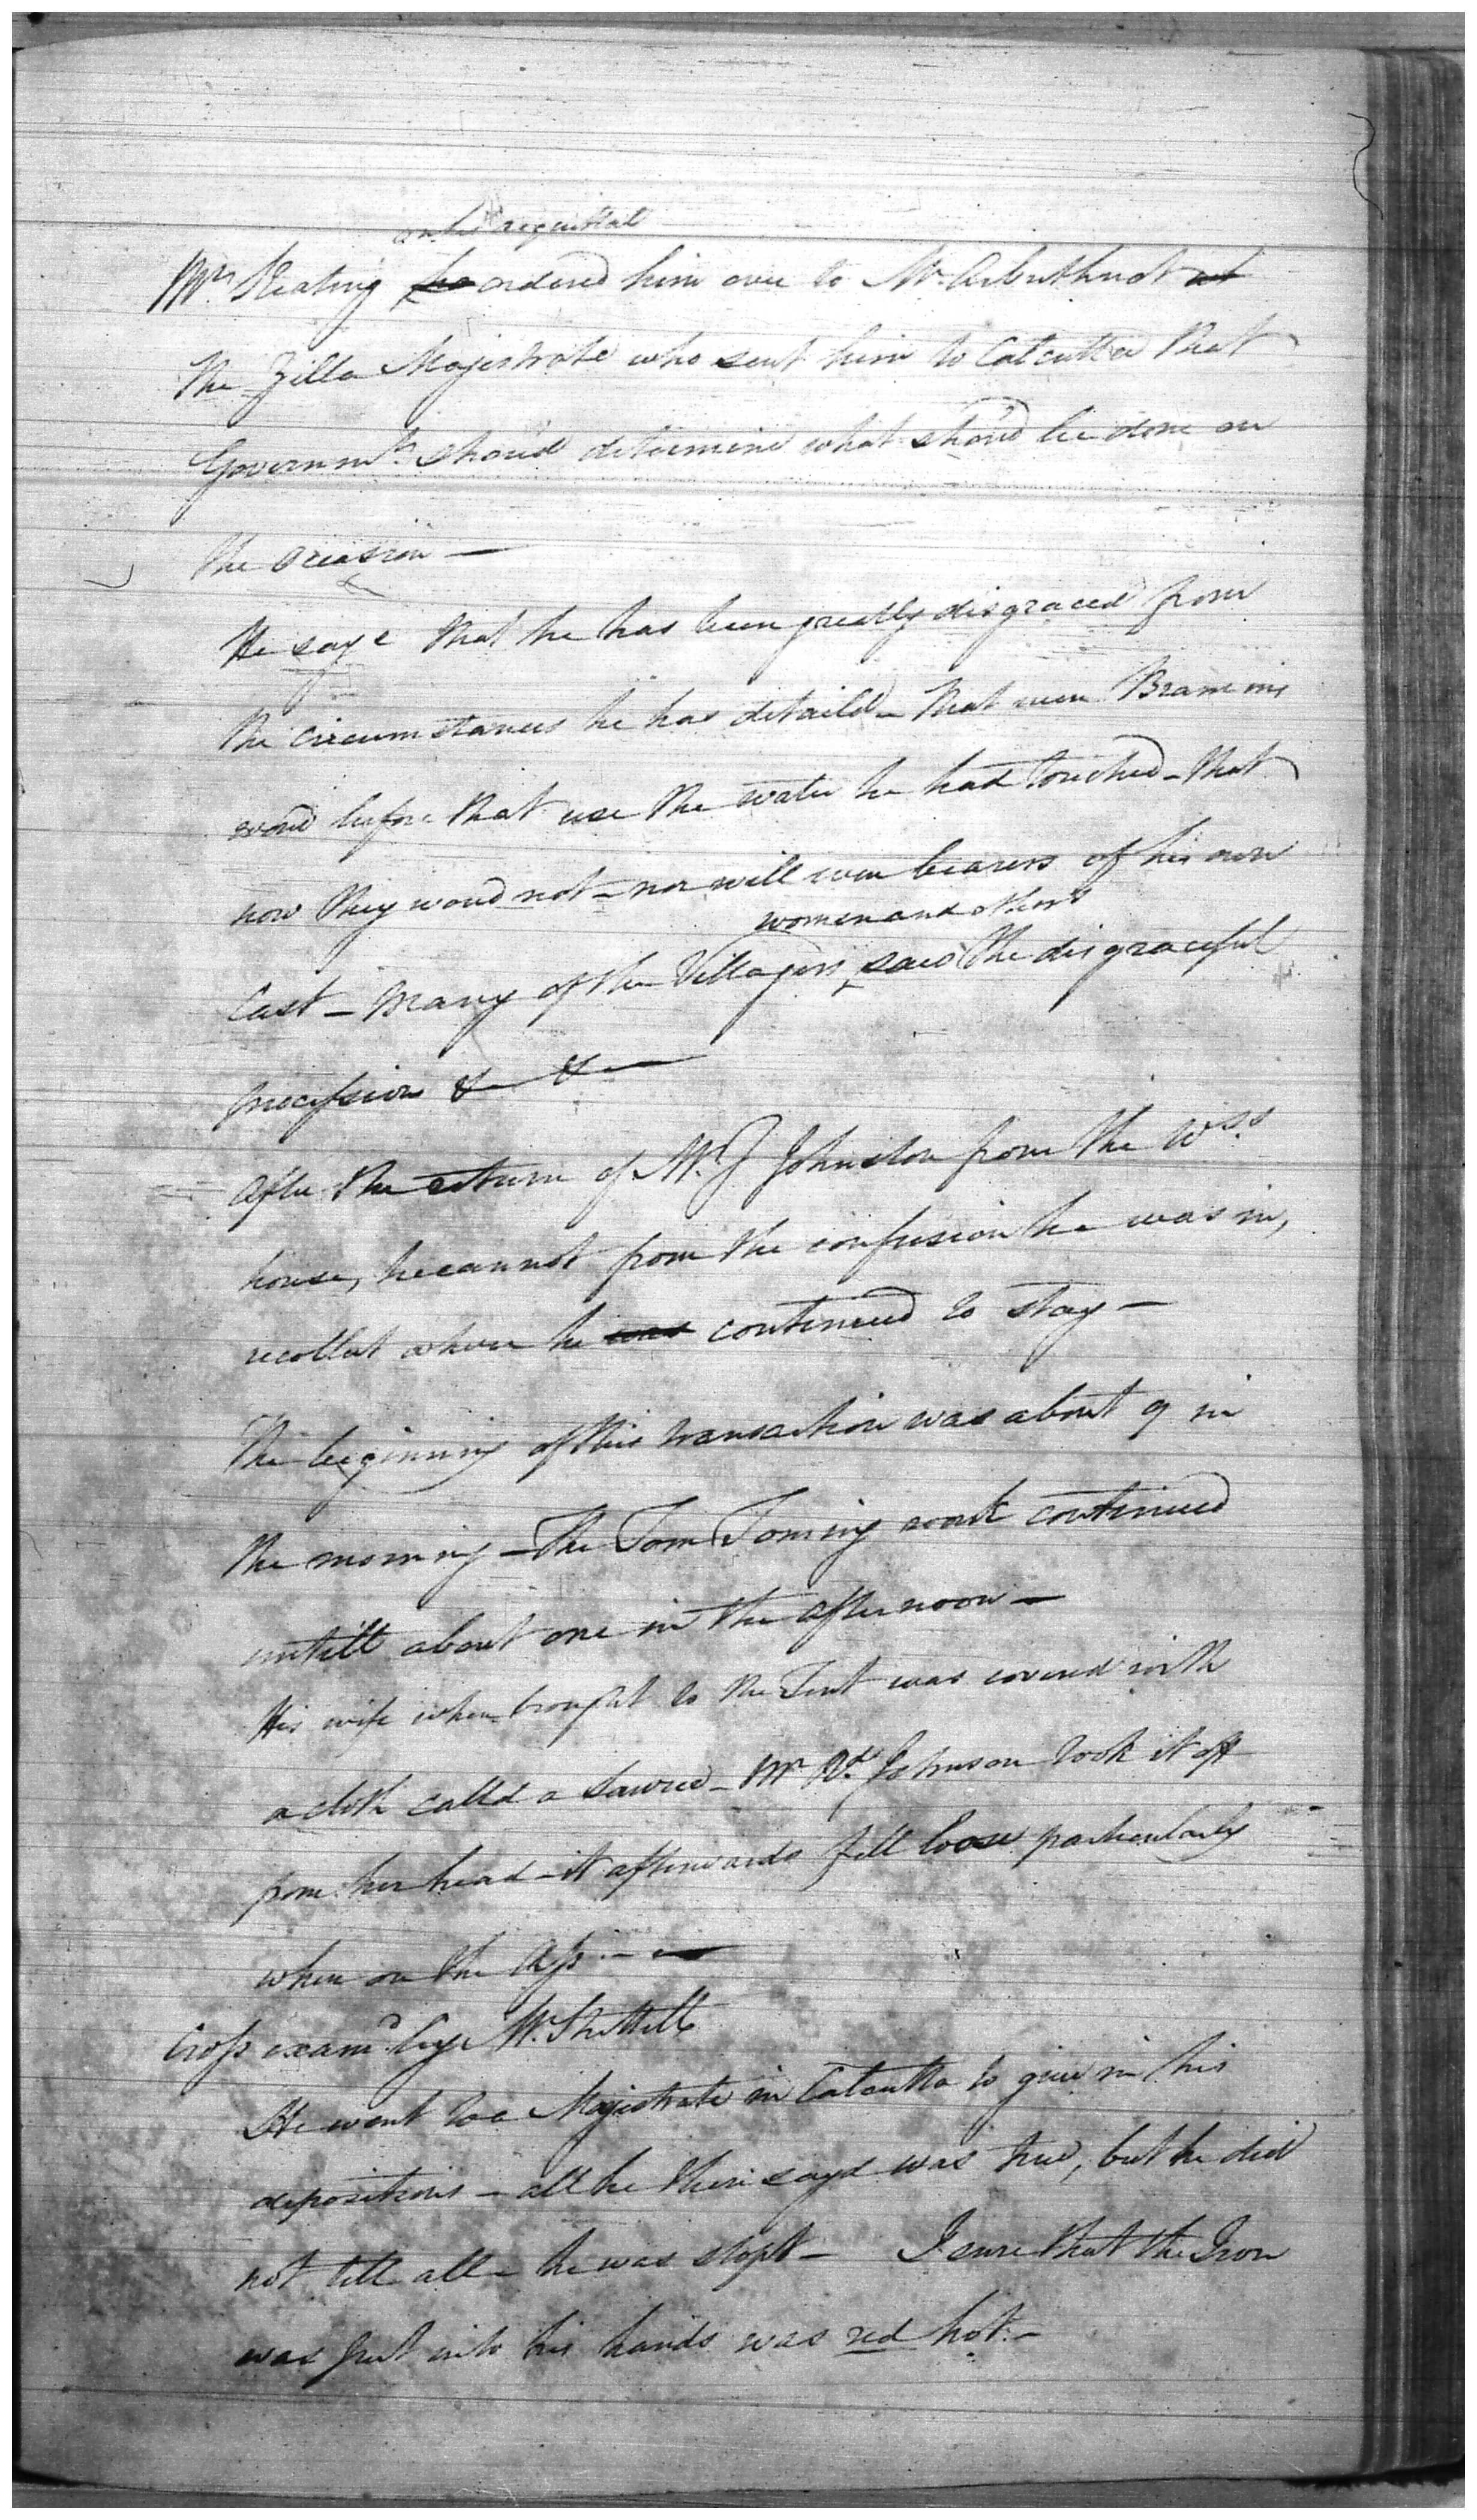 on his acquittal
Mr. Keating he ordered him over to Mr. Arbuthnot at
the Zilla Majestrate who sent him to Calcutta that
Governmt. shoud determine what shoud be done on
the occasion —
He says that he has been greatly disgraced from
the circumstances he has detaild — that even Bramins
woud before that use the water he had touched — that
now they woud not — nor will even bearers of his own
women and others
Cast — Many of the Villagers saw the disgraceful
procession & &
After the return of Mr. J Johnston from the Wss.
house, he cannot from the confusion he was in,
recollect where he was continued to stay —
The beginning of this transaction was about 9 in
the morning — The Tom Toming work continued
untill about one in the afternoon —
His wife when brought to the Tent was covered with
a cloth calld a Sawree — Mr Rd. Johnson took it off
from her head — it afterwards fell loose particularly
when on the Ass —
Cross examd. by Mr.
He went to a Majistrate in Calcutta to give in his
depositions — all he there sayd was true, but he did
not tell all — he was stopt — I sure that the Iron
was put into his hands was red hot. —